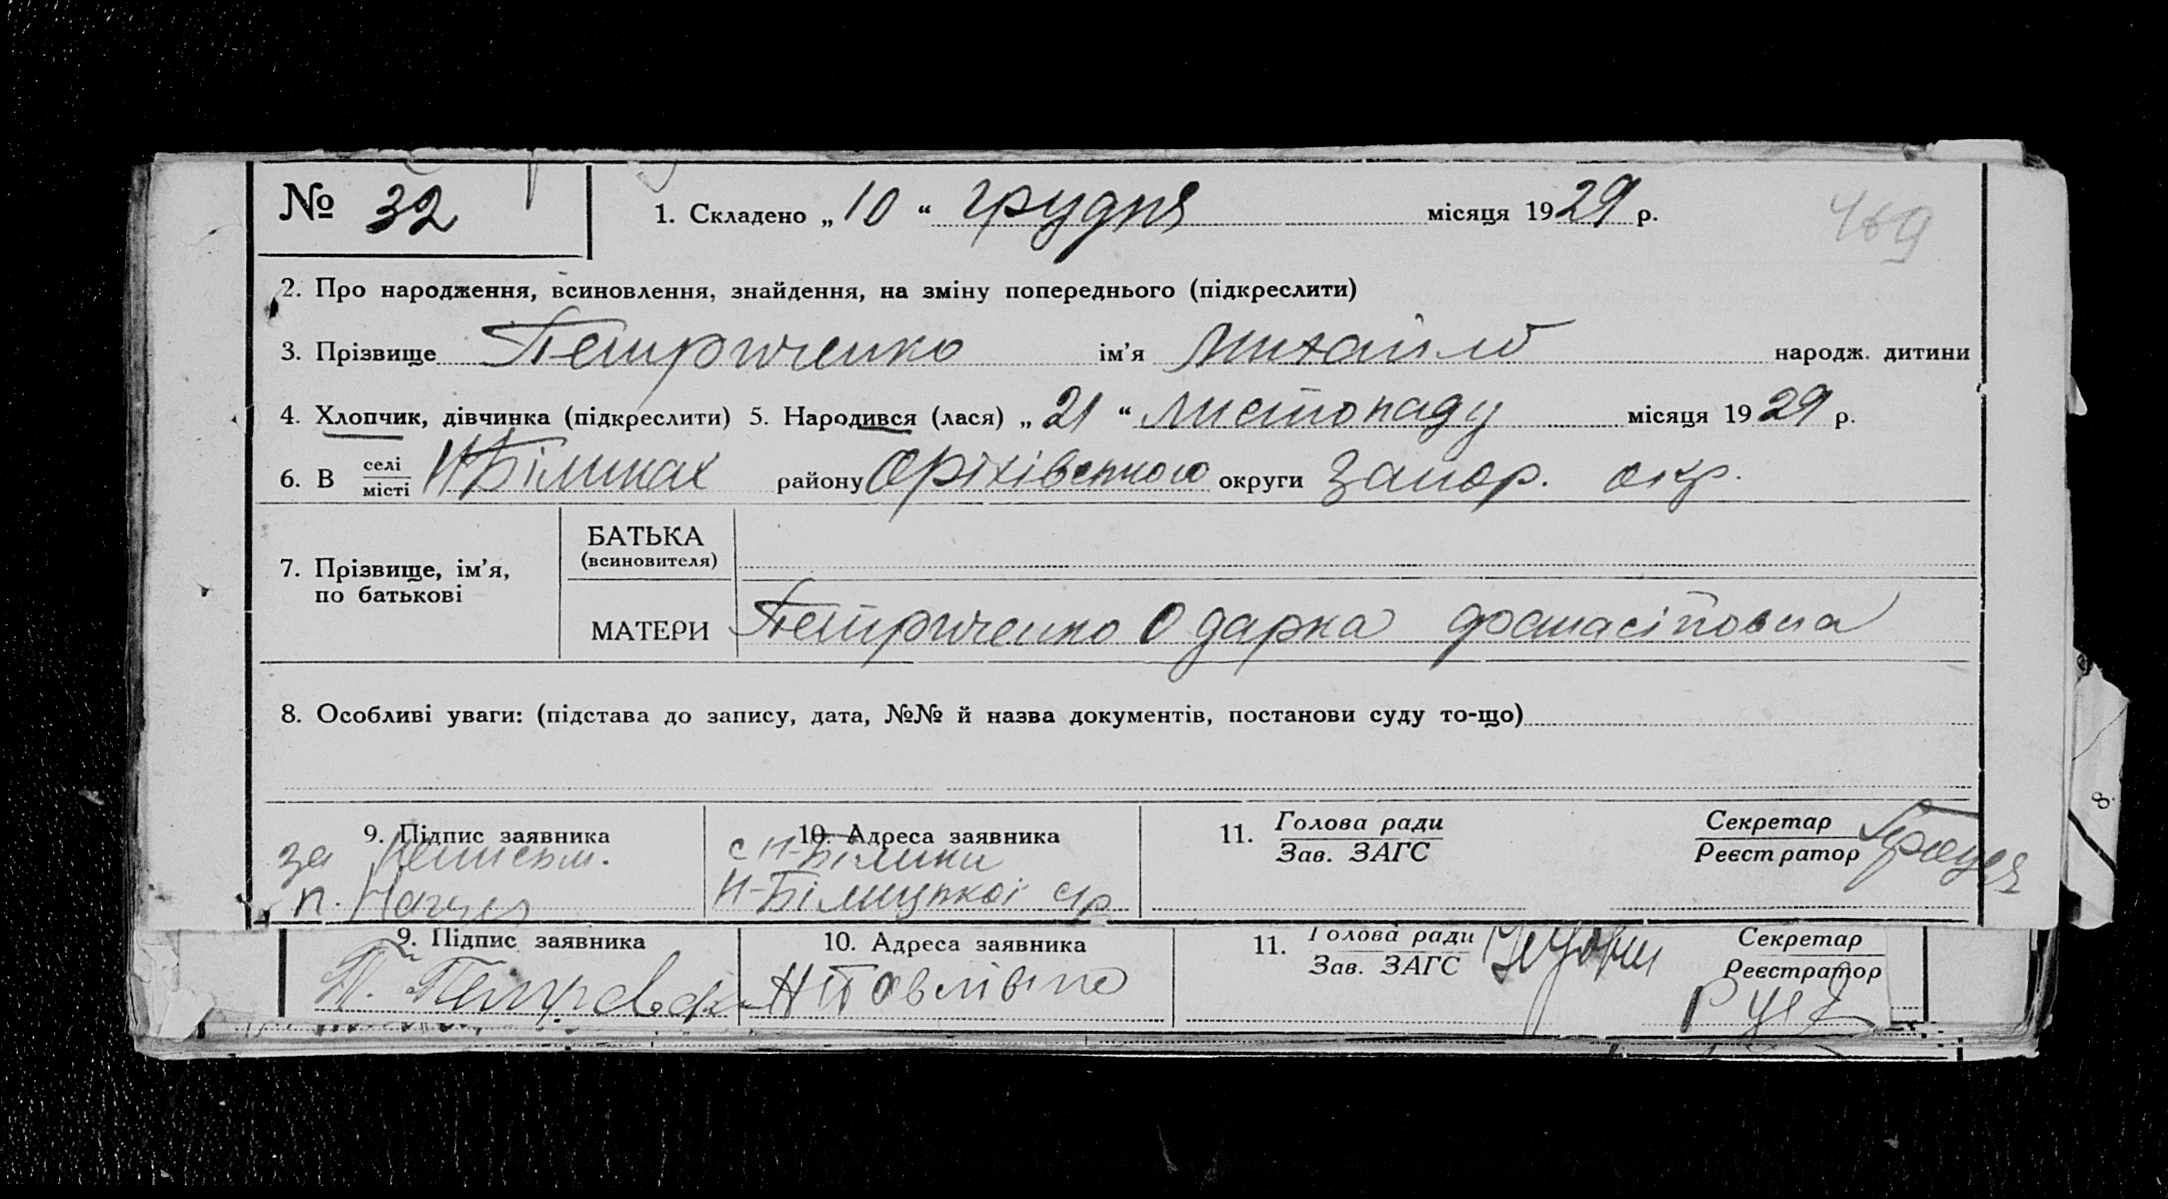 № 32
1. Складено „ 10 “ грудня місяця 1929 р.
469
2. Про народження, всиновлення, знайдення, на зміну попереднього (підкреслити)
3. Прізвище Петриченко ім’я Михайло народж. дитини
4. Хлопчик, дівчинка (підкреслити) 5. Народився (лася) „ 21 “ листопаду місяця 1929 р.
6. В селі місті Н Біликах району Оріхівського округи Запор. окр.
7. Прізвище, ім’я, по батькові
БАТЬКА
(всиновителя)
МАТЕРИ Петриченко Одарка
8. Особливі уваги: (підстава до запису, дата, №№ й назва документів, постанови суду то-що)
9. Підпис заявника
за неписьм.
п.
10. Адреса заявника
с Н-Білики
Н-Біл
11. Голова ради
Зав. ЗАГС
Секретар
Реєстратор
9. Підпис заявника
10. Адреса заявника
Н Павлівка
11. Голова ради
Зав. ЗАГС
Секретар
Реєстратор
8.